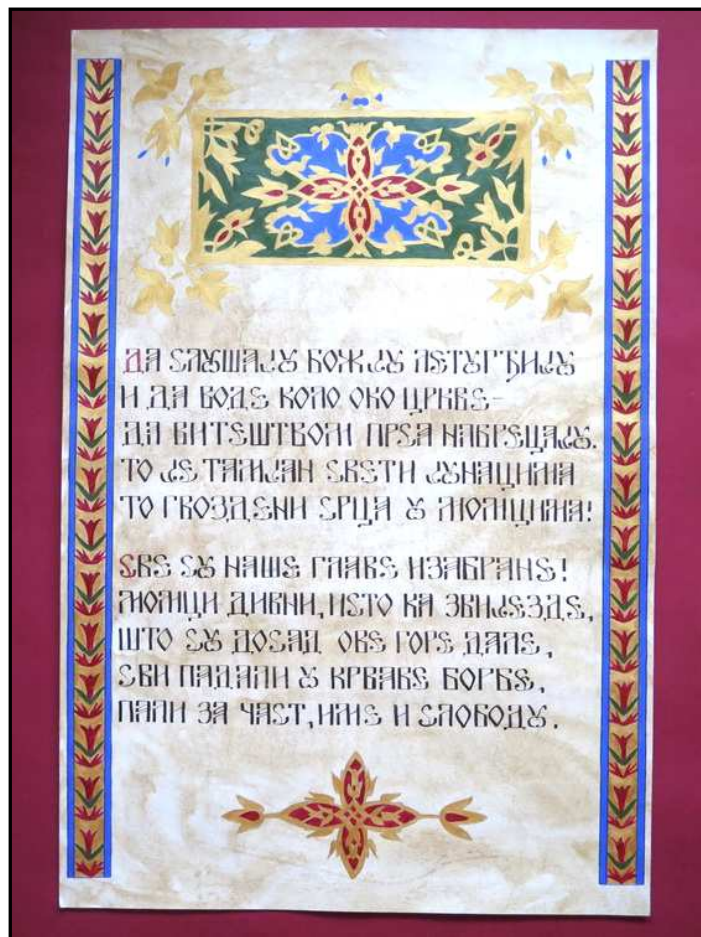 ДА СЛУШАЈУ БОЖЈУ ЛЕТУРЂИЈУ
И ДА ВОДЕ КОЛО ОКО ЦРКВЕ—
ДА ВИТЕШТВОМ ПРСА НАБРЕЦАЈУ.
ТО ЈЕ ТАМЈАН СВЕТИ ЈУНАЦИМА
ТО ГВОЗДЕНИ СРЦА У МОМЦИМА!
СВЕ СУ НАШЕ ГЛАВЕ ИЗАБРАНЕ!
МОМЦИ ДИВНИ, ИСТО КА ЗВИЈЕЗДЕ,
ШТО СУ ДОСАД ОВЕ ГОРЕ ДАЛЕ,
СВИ ПАДАЛИ У КРВАВЕ БОРБЕ,
ПАЛИ ЗА ЧАСТ, ИМЕ И СЛОБОДУ.